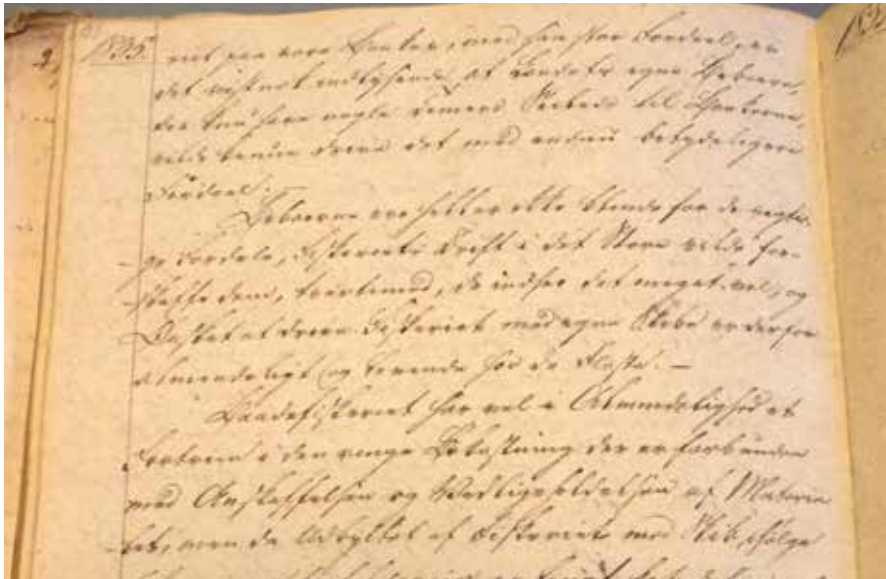 1835.
rint paa vore Banker, med saa stor Fordeel, er
det vistnok indlysende, at Landets egne Beboere,
der kun have nogle Timers Seilads til Bankerne,
vilde kunne drive det med endnu betydeligere
Fordeel.
Beboerne ere heller ikke blinde for de vigti-
ge Fordele, Fiskeriets Drift i det Store vilde for-
skaffe dem, tvertimod, de indsee det meget vel, og
Ønsket at drive Fiskeriet med egne Skibe er derfor
almindeligt og levende hos de Fleste. —
Baadefiskeriet har vel i Almindelighed et
Fortrin i den ringe Bekostning der er forbunden
med Anskaffelsen og Vedligeholdelsen af Materia
let, men da Udbyttet af Fiskeriet med Skib, ifølge